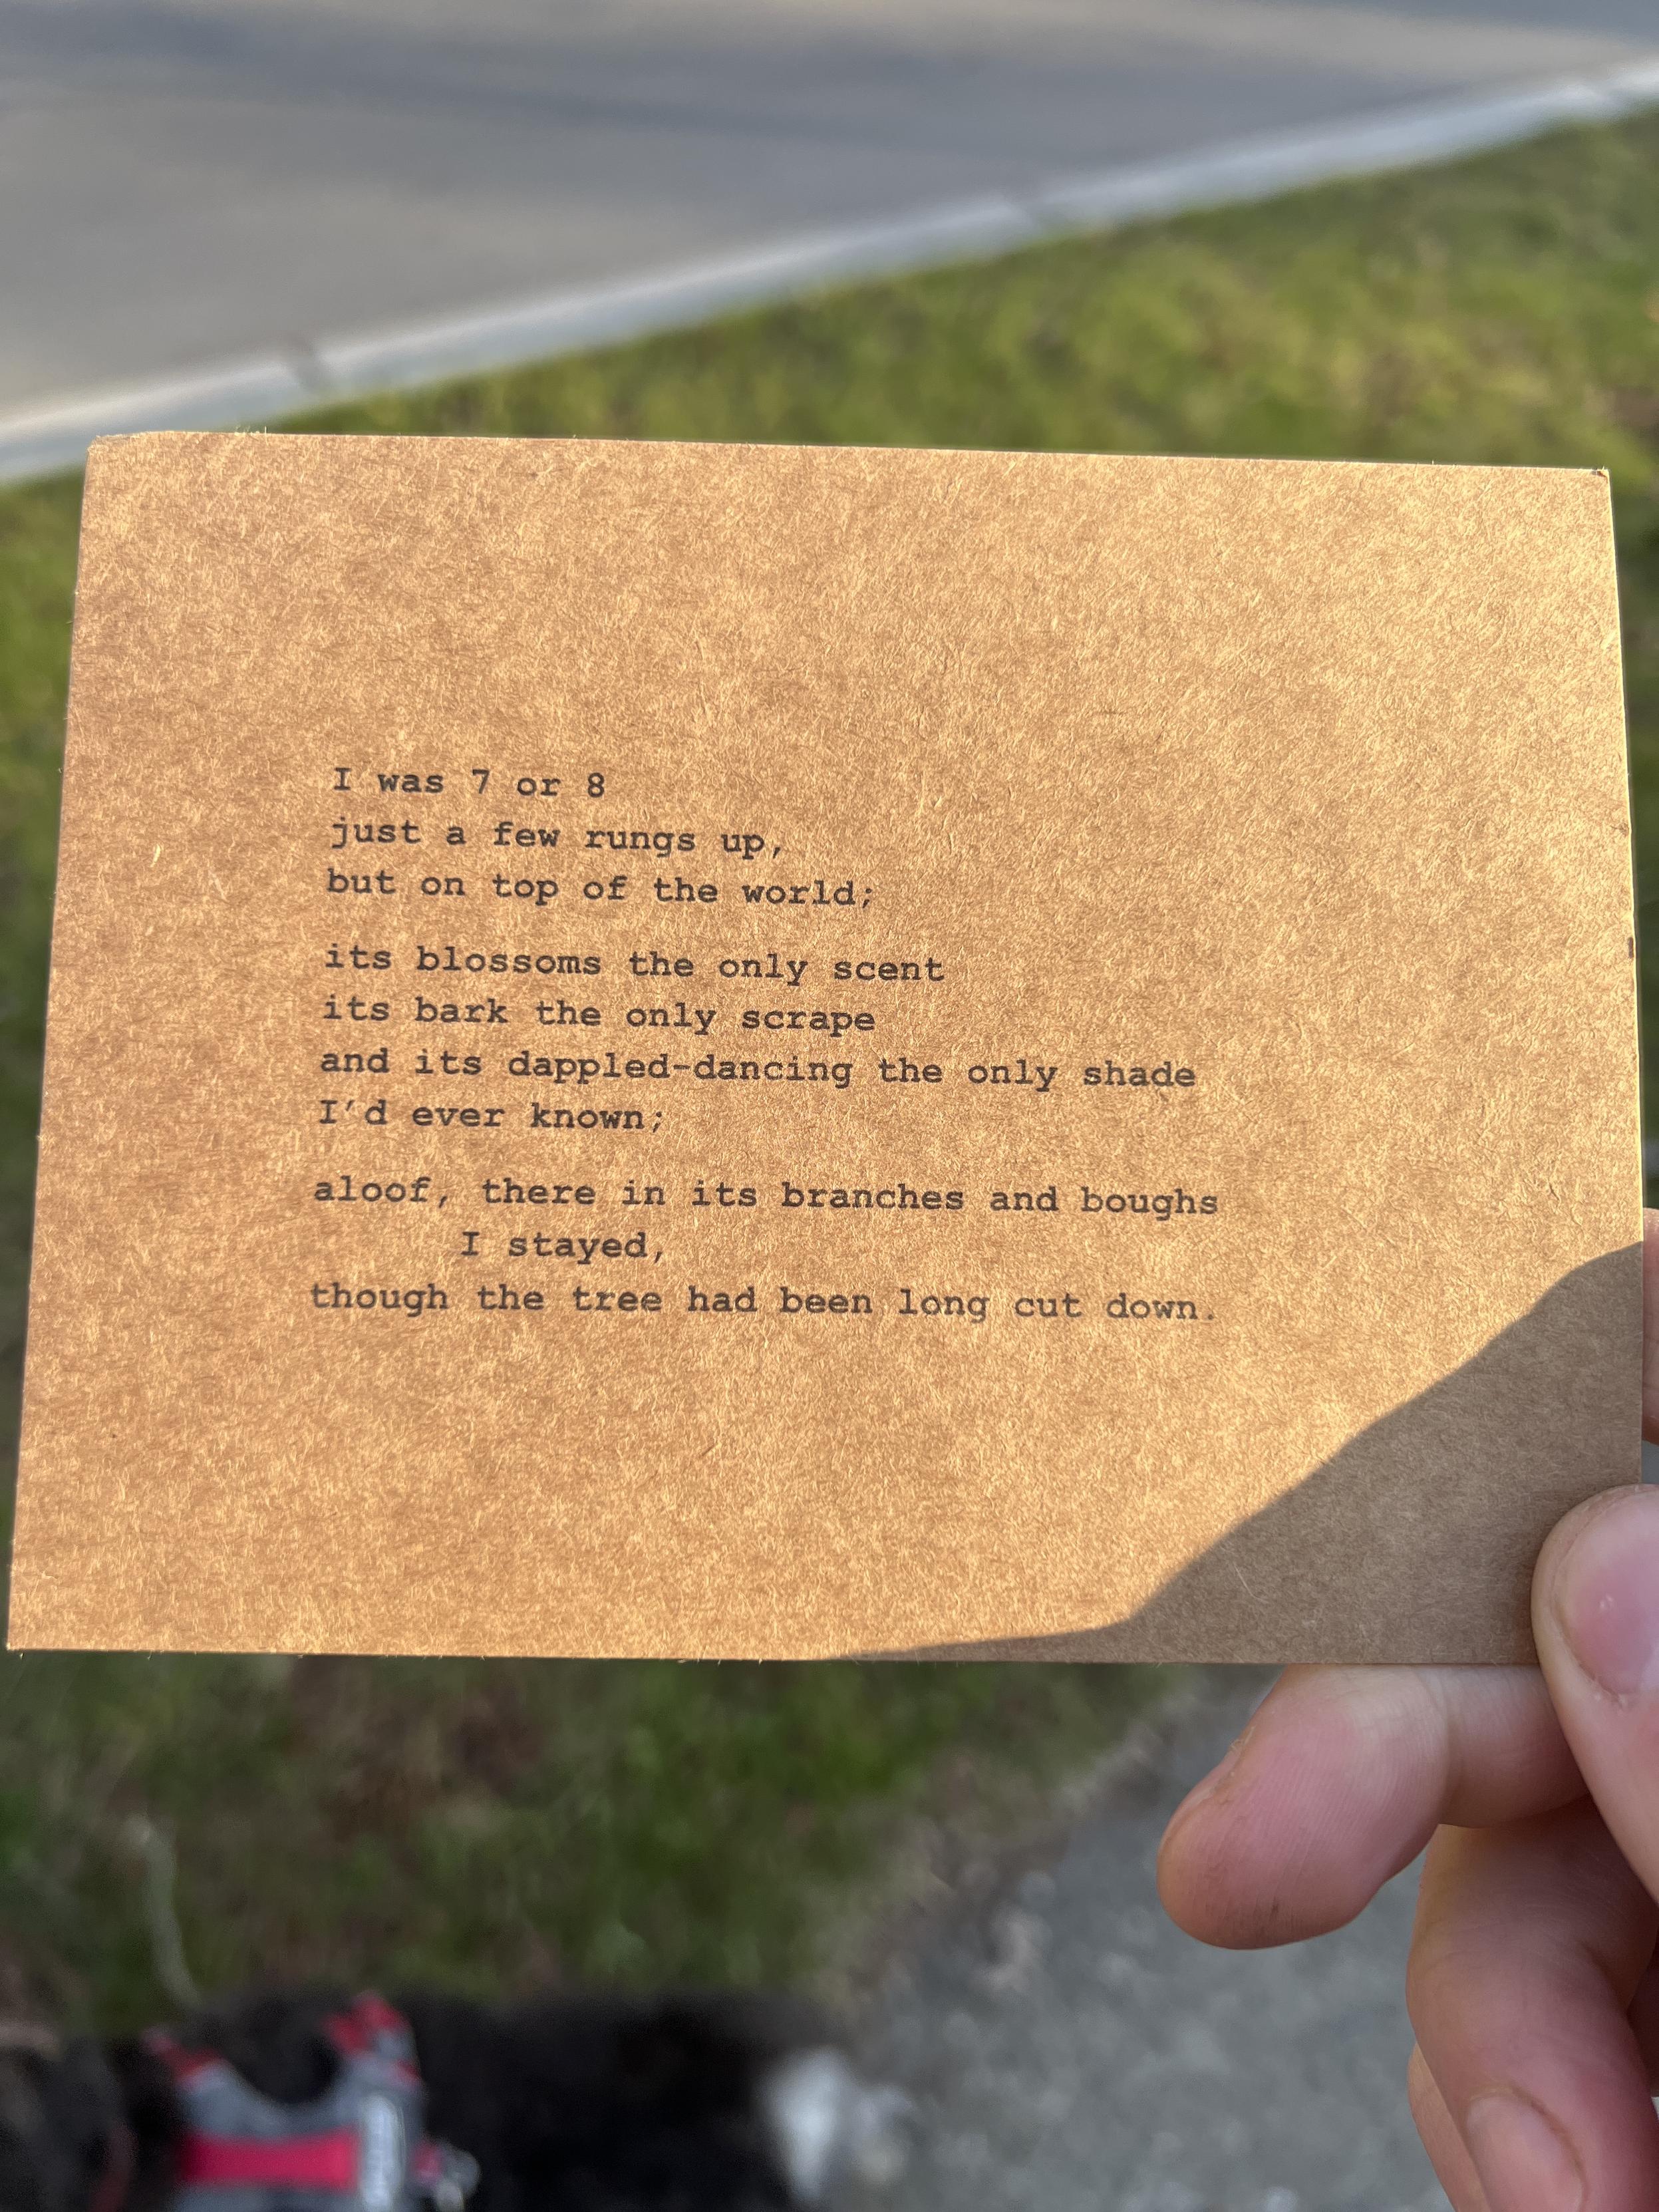 I was 7 or 8
just a few rungs up,
but on top of the world;
its blossoms the only scent
its bark the only scrape
and its dappled-dancing the only shade
I'd ever known;
aloof, there in its branches and boughs
I stayed,
though the tree had been long cut down.